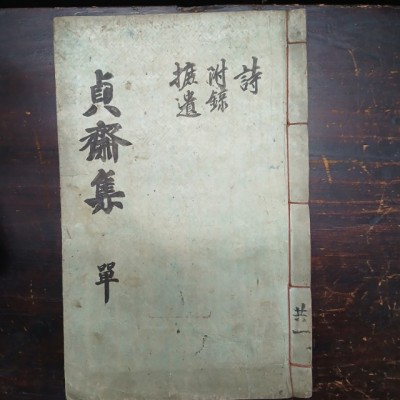 貞齋集 單
詩
附錄
摭遺
共一